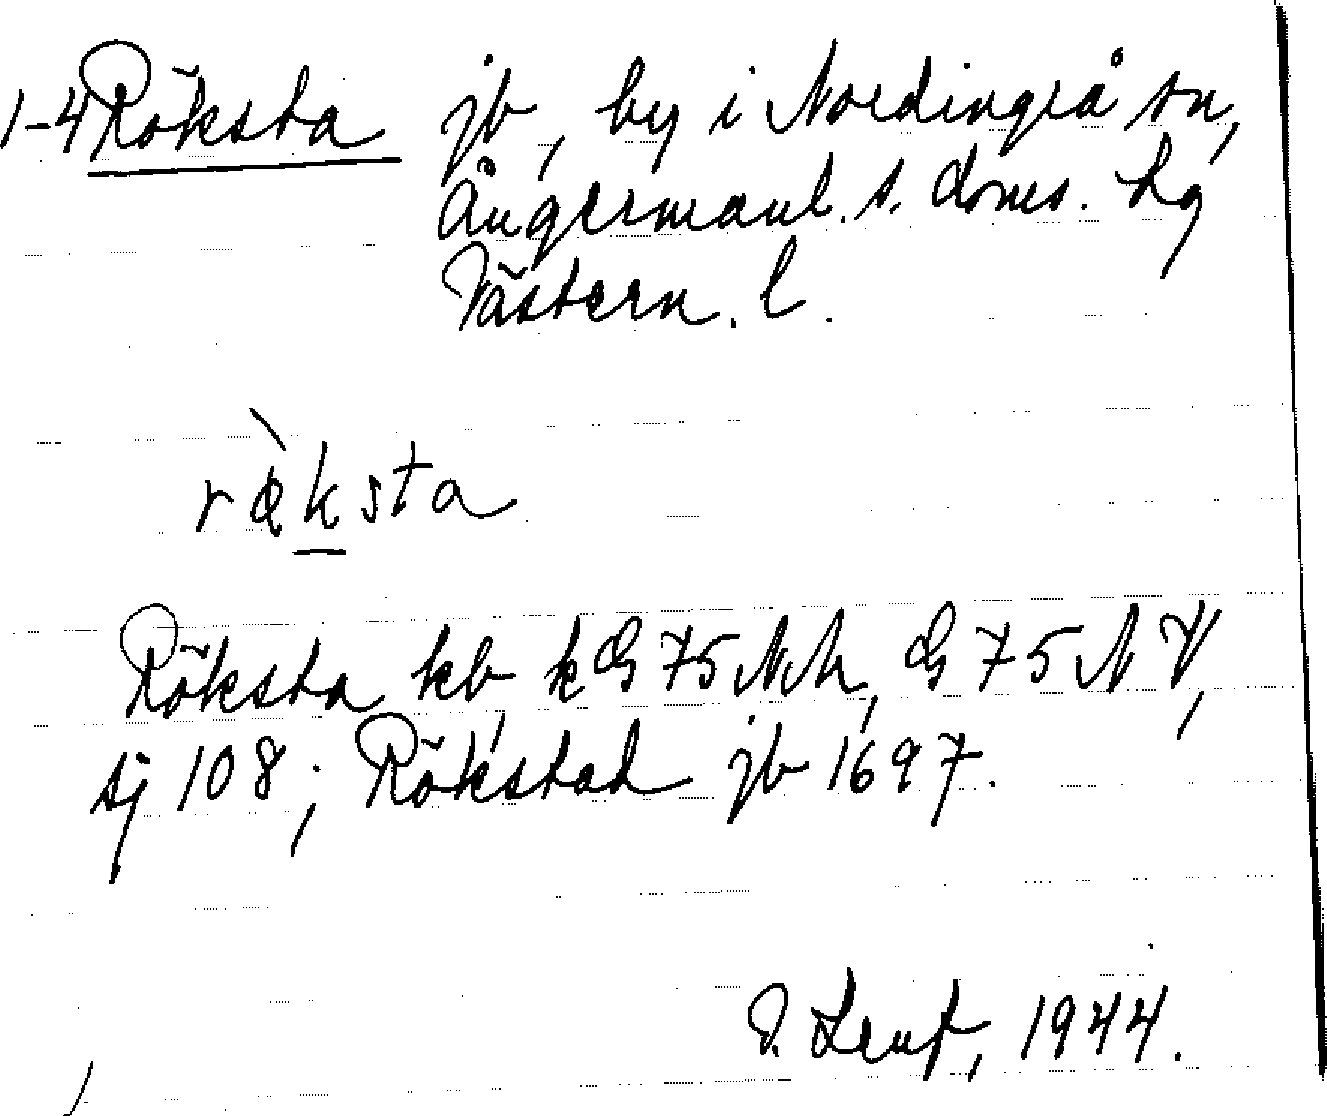 1-4 Röksta jb, by i Nordingrå sn,
Ångermanl. s. doms. hg
Västern. l.
ràksta
Röksta kb, kG75NM, G75NV,
sj 108; Rökstad jb 1697.
1944.